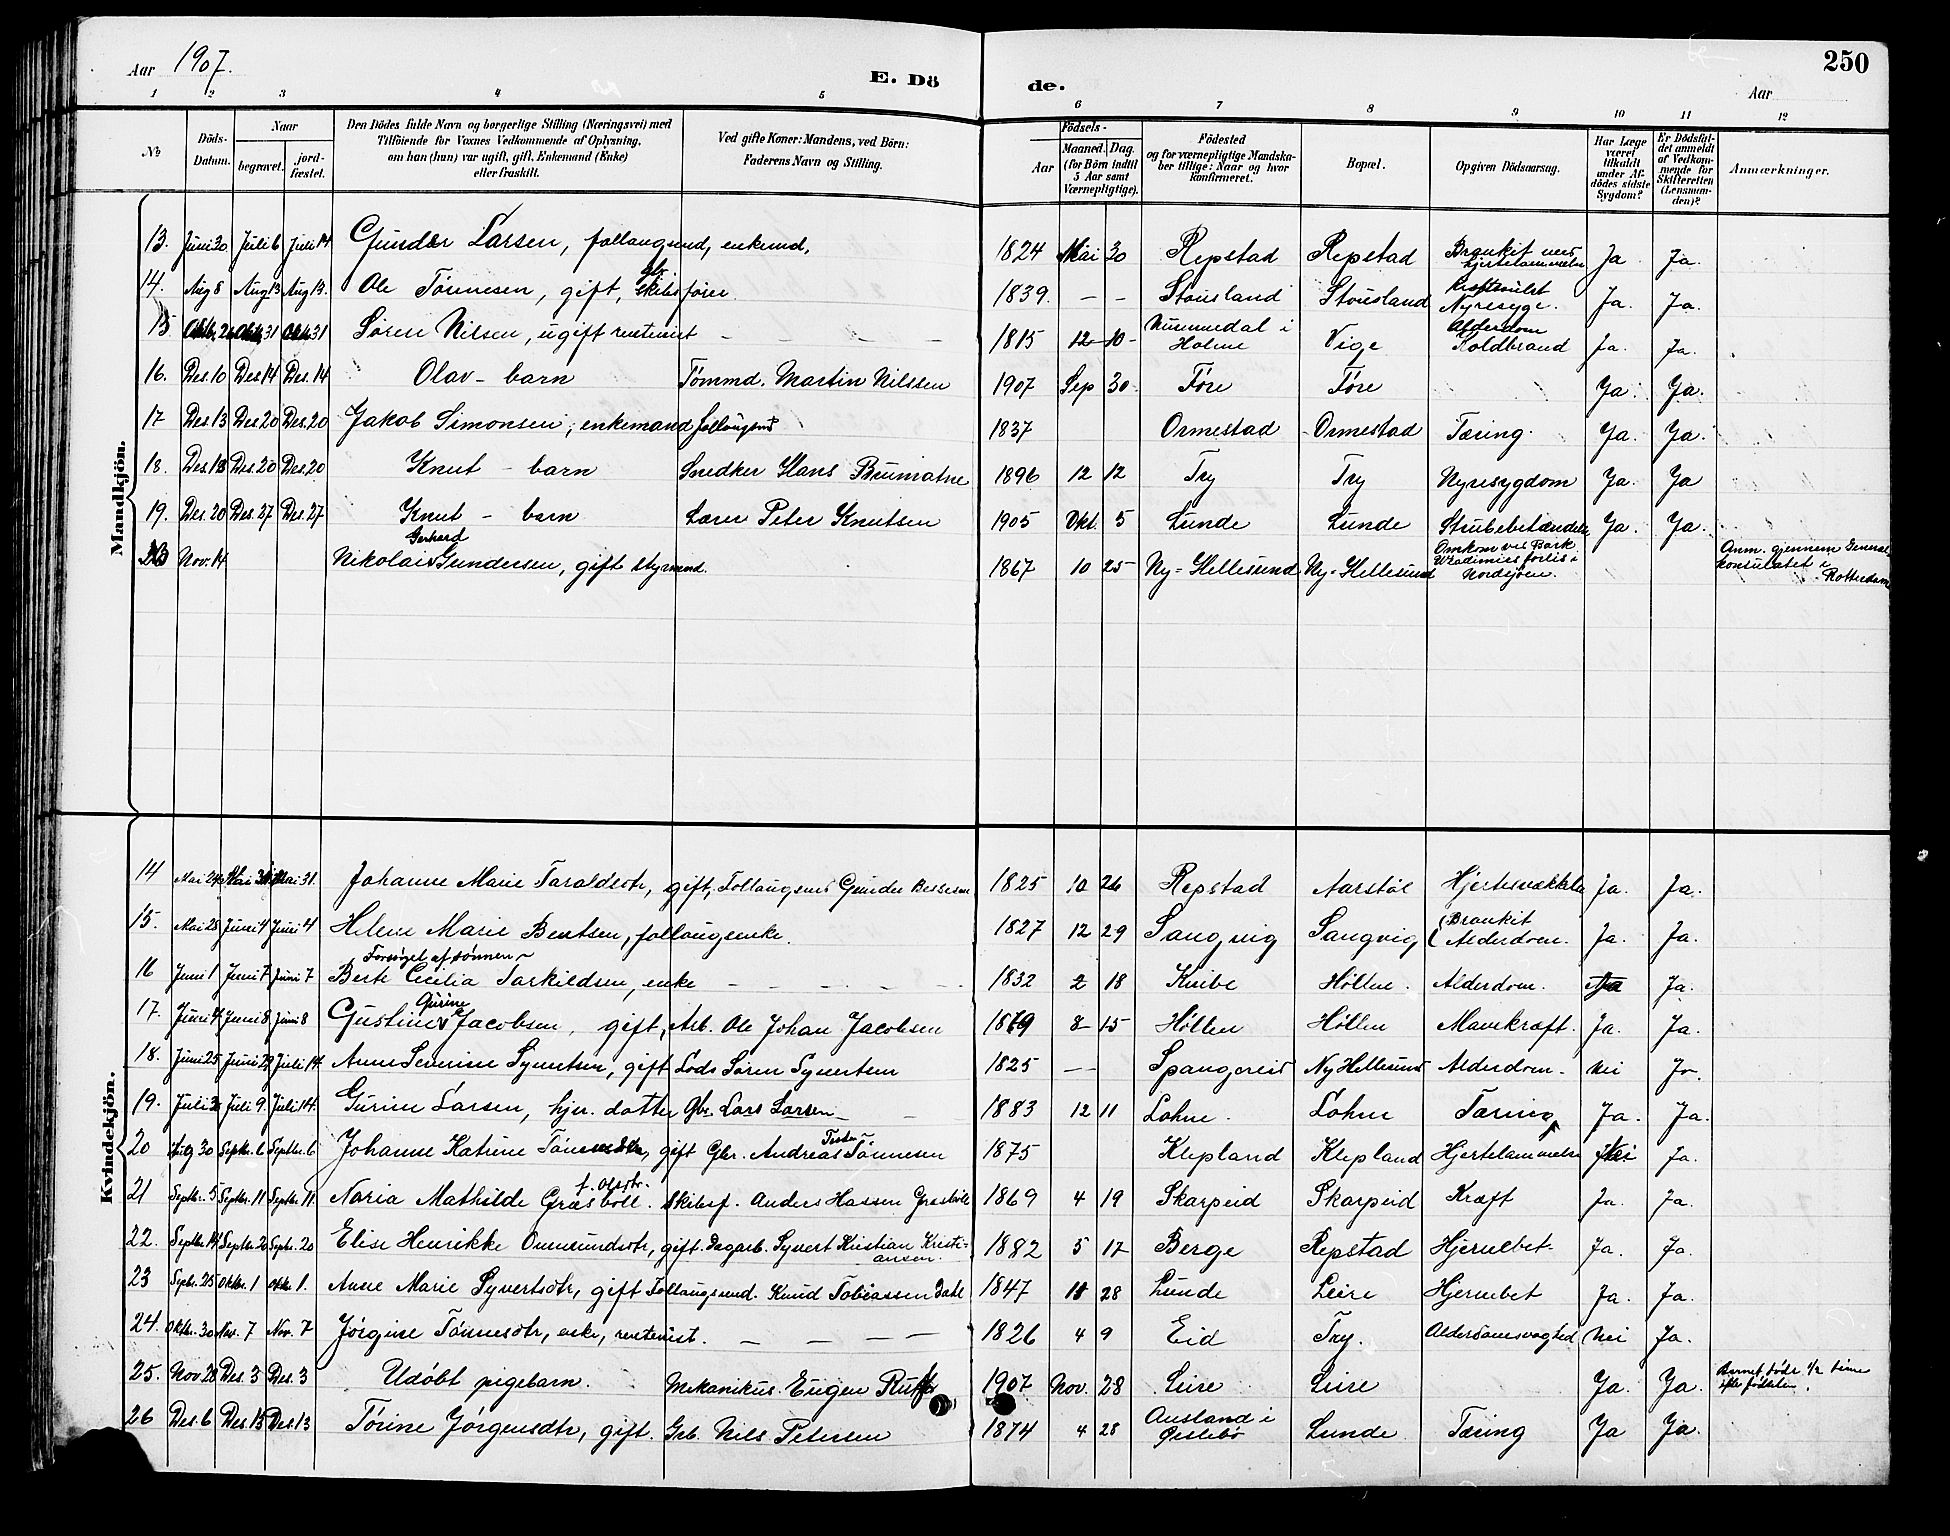 Aar 1907.
E. Dö
de.
Aar
250
1 2 3 4 5 6 7 8 9 10 11 12
No
Döds-Datum.
Naar
begravet.
jordfæstet.
Den Dödes fulde Navn og borgerlige Stilling (Næringsvei) med
Tilföiende for Voxnes Vedkommende af Oplysning,
om han (hun) var ugift, gift, Enkemand (Enke)
eller fraskilt.
Ved gifte Koner: Mandens, ved Börn:
Faderens Navn og Stilling.
Födsels-
Aar
Maaned. Dag.
(for Börn indtil
5 Aar samt
Værnepligtige).
Födested
og for værnepligtige Mandskaber tillige: Naar og hvor
konfirmeret.
Bopæl.
Opgiven Dödsaarsag.
Har Læge
været
tilkaldt
under Afdödes sidste
Sygdom?
Er Dödsfaldet anmeldt
af Vedkommende for
Skifteretten
(Lensmanden)?
Anmærkninger.
Mandkjön.
13. Juni 30 Juli 6 Juli 14 Gunder Larsen, follaugsmd, enkemd, 1824 Mai 30 Repstad Repstad Bronkit med hjertelammelse Ja Ja.
14. Aug 8 Aug 13 Aug 13. Ole Tønnesen, gift, skibsfører 1839. – – Stousland Stousland Nyresyge. Ja. Ja.
15 Okt. 26 Okt. 31 Okt 31 Søren Nilsen, ugift rentenist – – – – 1815 12 – 10 – Nummedal i Holme Vige Alderdom Koldbrand Ja. Ja.
16. Des. 10 Des 14 Des. 14 Olav – barn Tømmd. Martin Nilssen 1907 Sep 30 Føre Føre Ja. Ja.
17 Des. 13 Des 20 Des. 20 Jakob Simonsen, enkemand follaugsmd 1837 Ormestad Ormestad Tæring. Ja. Ja.
18. Des. 13 Des. 20 Des. 20 Knut – barn Snedker Hans Brumatne 1896 12 12 Try Try Nyresygdom Ja. Ja
19. Des. 20 Des. 27 Des. 27 Knut – barn Lærer Peter Knutsen 1905 Okt. 5 Lunde Lunde Strubebetændelse Ja. Ja.
20 Nov. 14 Nikolai Gerhard Gundersen, gift styrmand. 1867 10 25 Ny-Hellesund Ny-Hellesund Omkom ved Bark Wladimirs forlis i Nordsjøen. Anm. gjennem Generalkonsulatet i Rotterdam
Kvindekjön.
14 Mai 24 Mai 31 Mai 31. Johanne Marie Taraldsdtr, gift, Follaugsmd Gunder Bessesen 1825 10 26 Repstad Aarstøl Hjertesvækkelse Ja. Ja.
15. Mai 28 Juni 4 Juni 4 Helene Marie Bentsen, follaugsenke. 1827 12 29 Sangvig Sangvig Bronkit Alderdom. Ja. Ja.
16 Juni 1 Juni 7 Juni 7 Berte Cecilia Tarkildsen, enke Forsørget af sønnen – – – – 1832 2 18 Knibe Høllen. Alderdom. Ja.
17. Juni 4 Juni 8 Juni 8 Gustine Gurine Jacobsen, gift, Arb. Ole Johan Jacobsen 1879 8 – 15 Høllen Høllen Mavekræft. Ja. Ja.
18. Juni 25 Juni 29 Juli 14. Anne Severine Syvertsen, gift Lods Søren Syvertsen 1825 – – Spangereid Ny Hellesund Alderdom Nei Ja.
19. Juli 3 Juli 9. Juli 14. Gurine Larsen, hjv. datter Gbr. Lars Larsen – – 1883 12 11 Lohne. Lohne Tæring Ja. Ja.
20 Aug 30 Septbr. 6 Septbr. 6 Johanne Katrine Tønnesdtr, gift Gbr. Andreas Tønnesen 1875 Klepland Klepland Hjertelammelse Nei Ja.
21 Septbr. 5 Septbr. 11 Septbr. 11. Naria Mathilde Græsbøll f. Olsdtr. Skibsf. Anders Hassen Græsbøll 1869 4 19 Skarpeid Skarpeid Kræft Ja. Ja.
22. Septbr. 14 Septbr. 20 Septbr. 20 Elise Henrikke Ommundsdtr, gift. Dagarb. Syvert Kristian Kristiansen. 1882 5 17 Berge Repstad Hjernebet. Ja. Ja.
23 Septbr. 25 Oktbr. 1 Oktbr. 1. Anne Marie Syvertsdtr, gift Follaugsmd. Knud Tobiassen Dahl 1847 11 28 Lunde Leire Hjernebet Ja. Ja.
24. Oktbr. 30 Nov. 7 Nov. 7 Jørgine Tønnesdtr, enke, rentenist. – – – – 1826 4 9 Eid Try. Alderdomssvaghed Nei Ja.
25. Nov 28 Des. 3 Des. 3 Udøbt pigebarn. Mekanikus. Eugen Ruff 1907 Nov. 28 Leire Leire Ja. Ja. Barnet døde 1/2 time efter fødselen.
26 Des. 6 Des. 13 Des. 13 Tørine Jørgensdtr, gift. Grb. Nils Petersen 1874 4 28 Ausland i Øislebø Lunde Tæring Ja Ja.